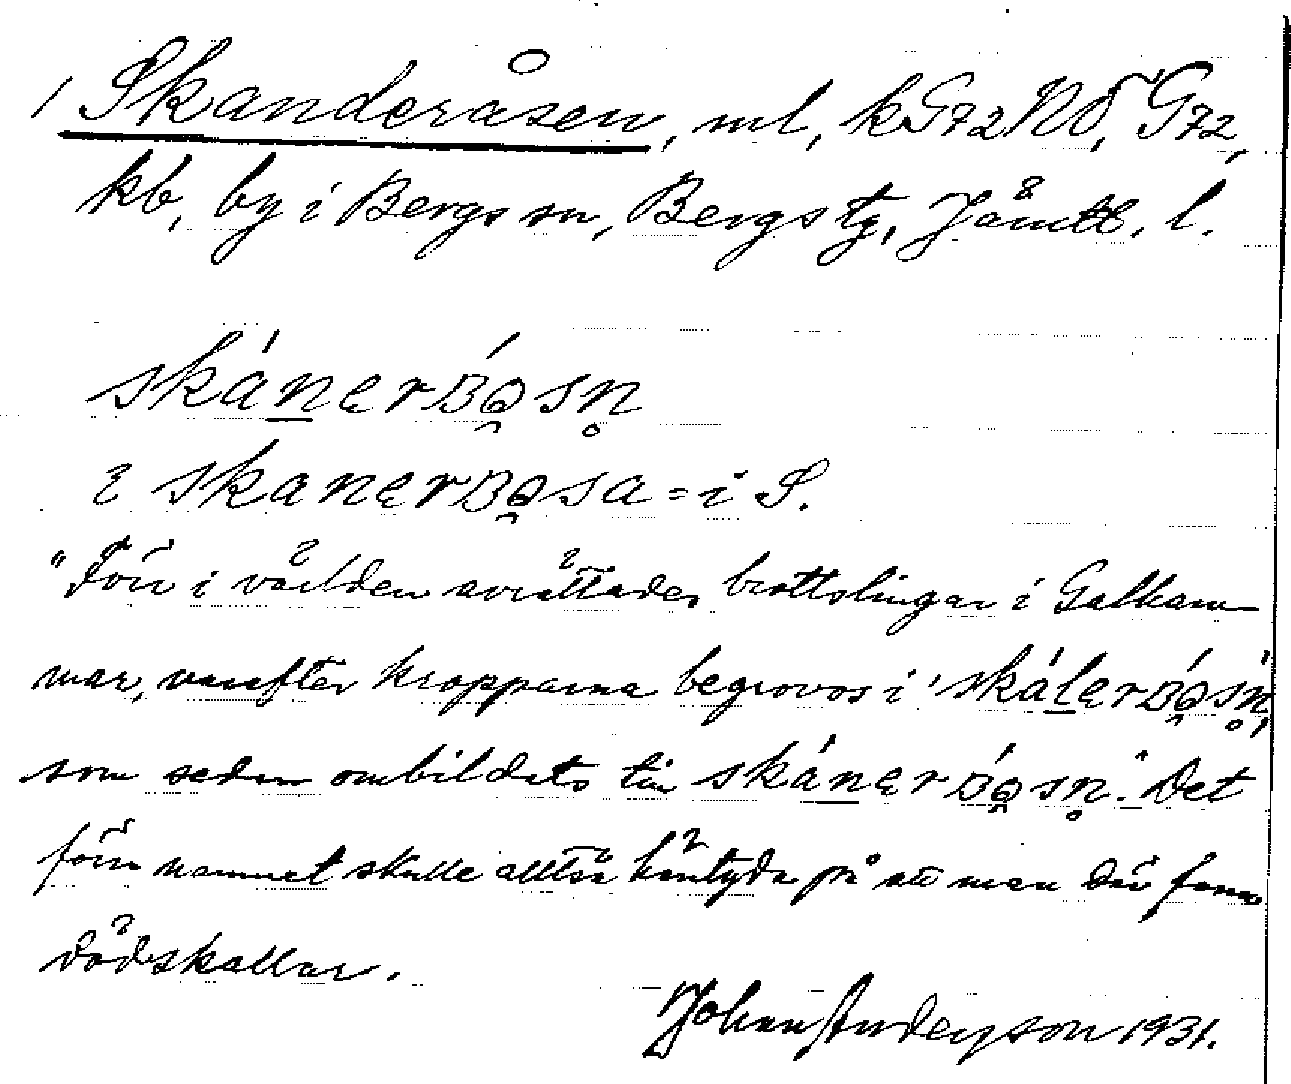 1 Skanderåsen, ml, kG72NO, G72,
kb, by i Bergs sn, Bergs tg, Jämtl. l.
skánerBo̯sn̥
i skanerBo̯sa = i S.
"Förr i världen avrättades brottslingar i Galham-
mar, varefter kropparna begrovos i 'skálerBó̯sn̥,
som sedan ombildats till skánerBó̯sn̥." Det
förra namnet skulle alltså häntyda på att man där fann
dödskallar.
Johan Anderson 1931.